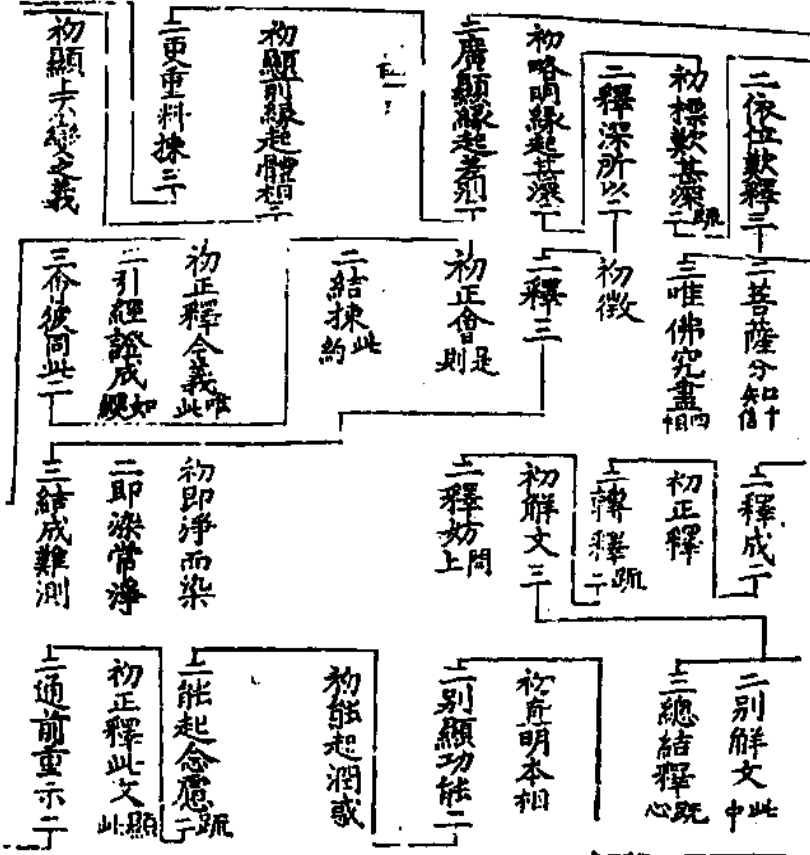 二依位歎釋三
初標歎甚深二 䟽
二釋深所以二
初略明緣起甚深二
二廣顯緣起差別二
初顯前緣起體相二
二更重料揀三
初顯上六爻變之義
二菩薩分知 信
三唯佛究盡 四相
初徵
二釋三
初正會 是則
二結揀 此約
初正釋今義 唯此
二引經證成 如
三會彼同此二
二釋成二
初正釋
二轉釋二 䟽
初解文三
二釋妨 問上
初即淨而染
二即染常淨
三結成難測
二別解文 此中
三總結釋 既心
初直明本相
二別顯功能二
初能起潤惑
二能起念慮二 䟽
初正釋此文 顯此
二通前重示二